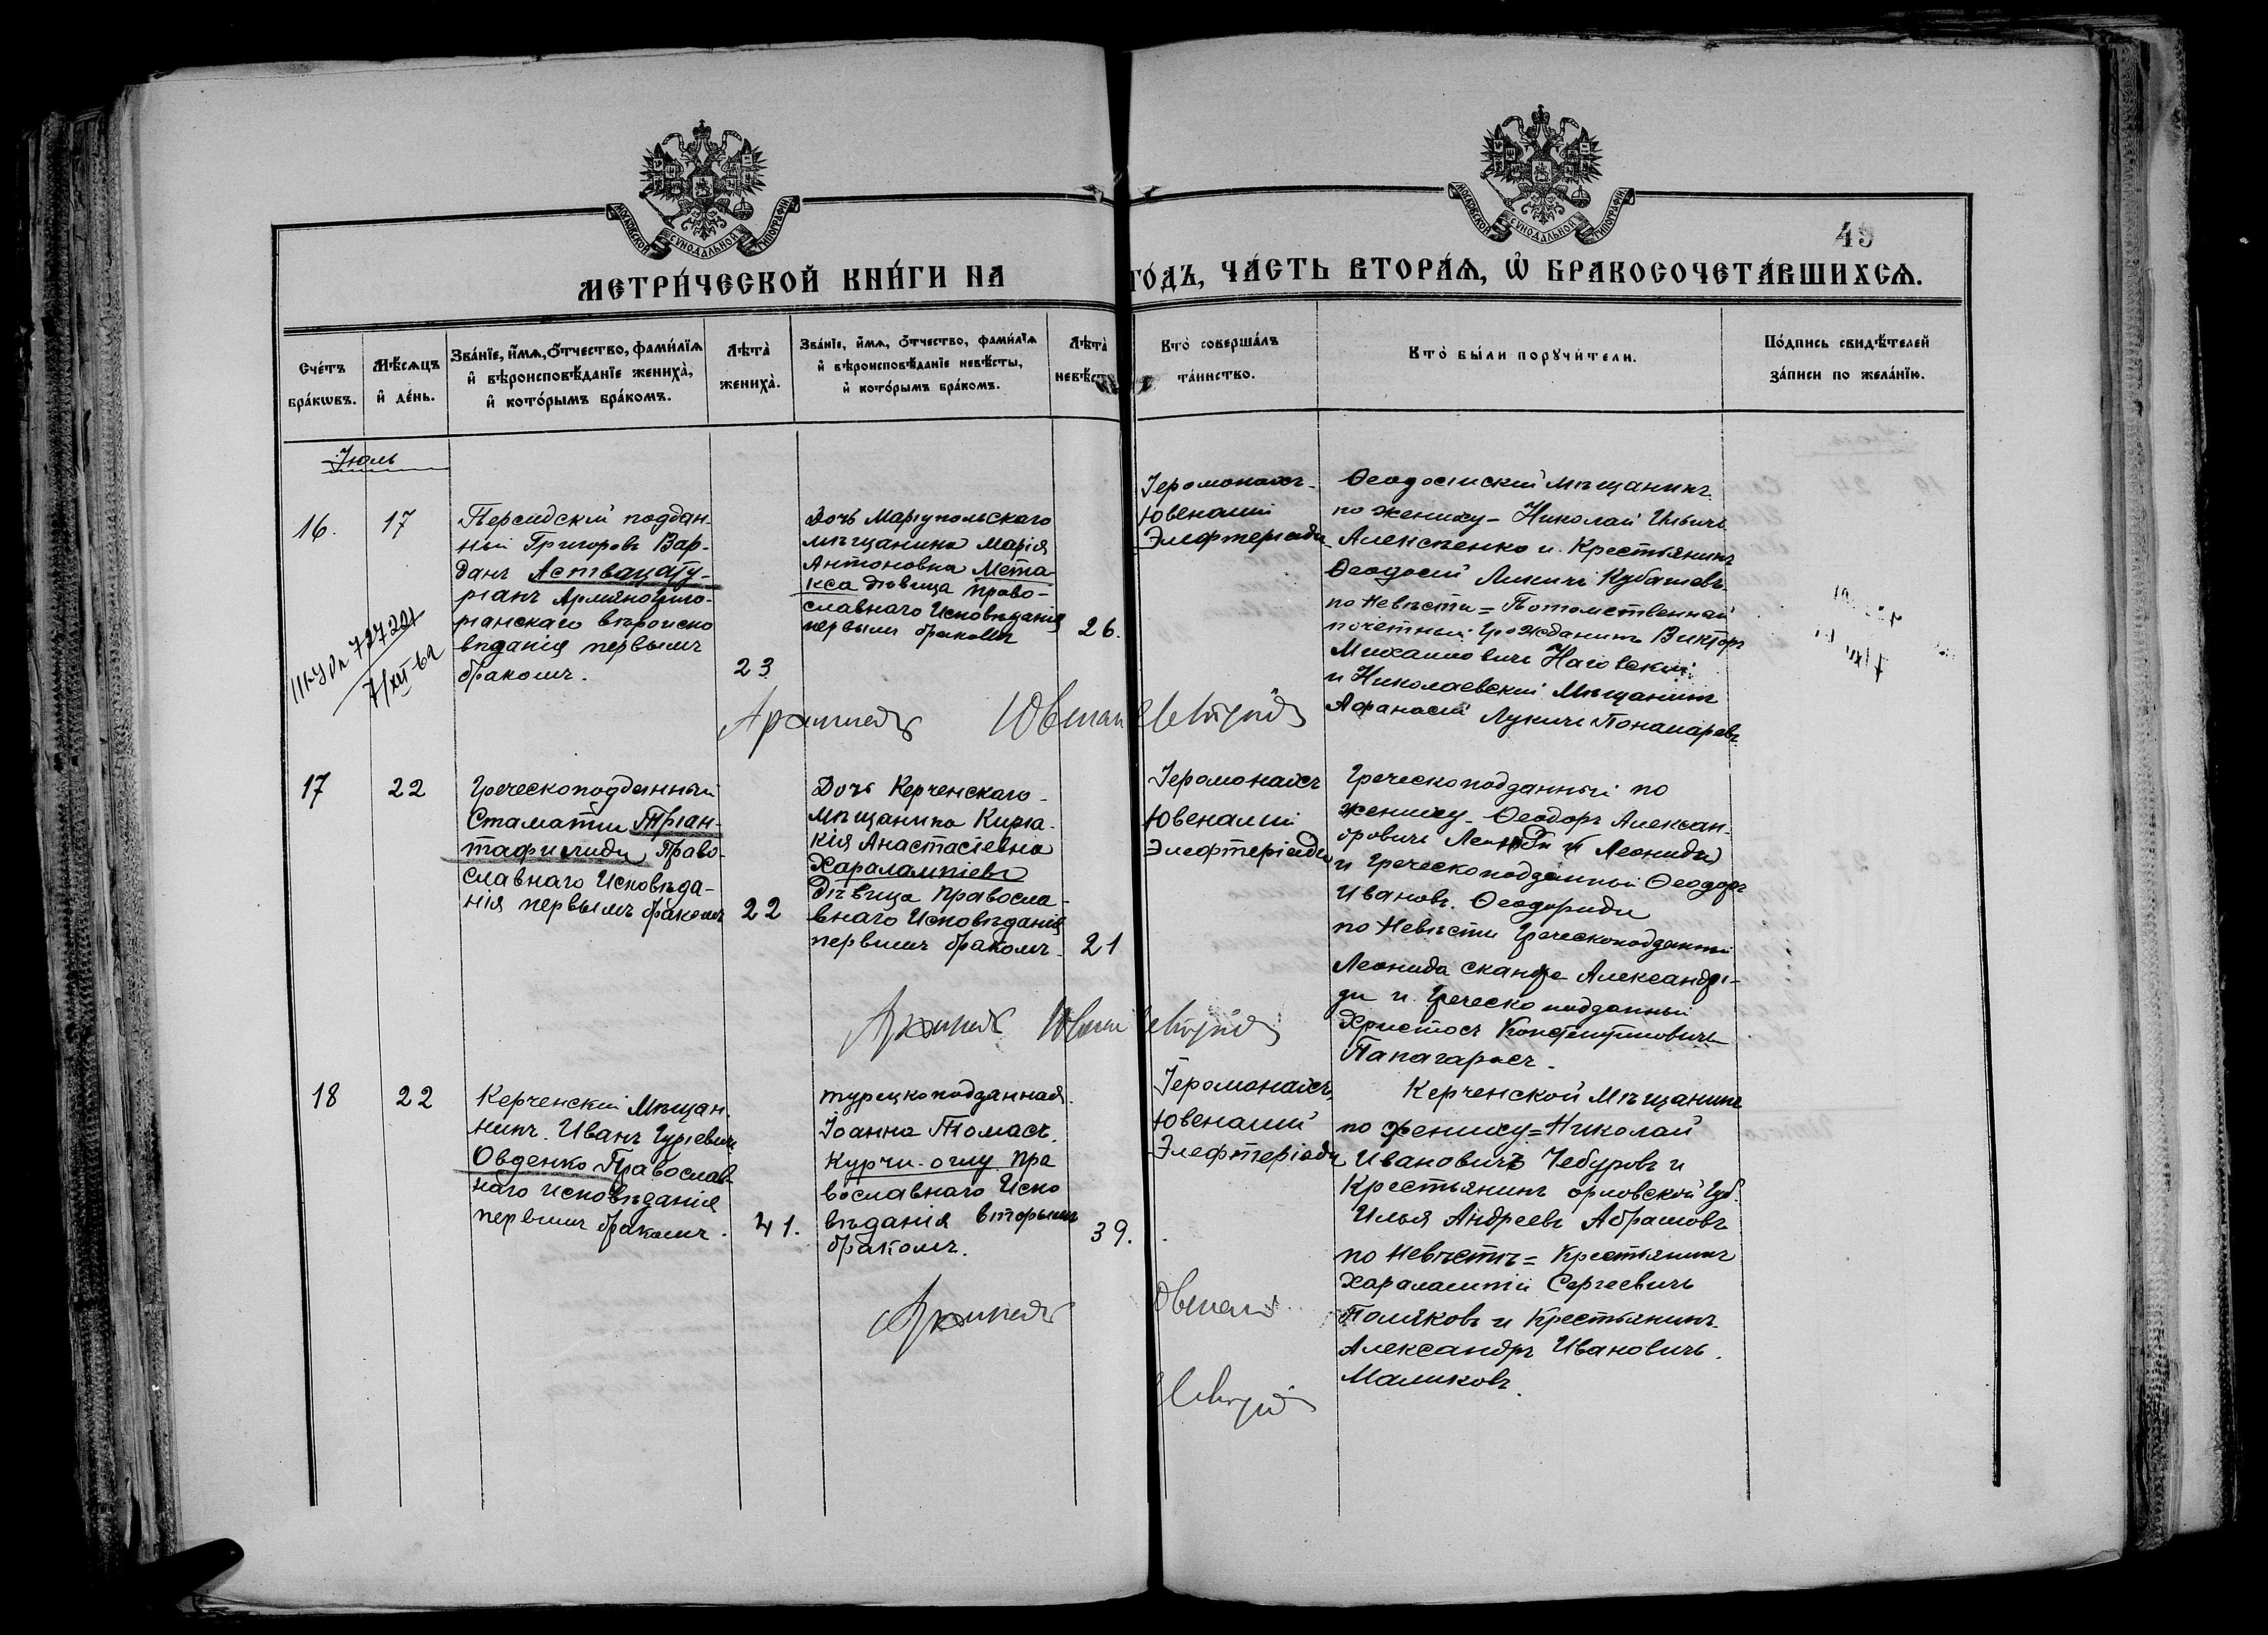 МОСКОВСКОЙ СѴНОДАЛЬНОЙ ТИПОГРАФИИ
МОСКОВСКОЙ СѴНОДАЛЬНОЙ ТИПОГРАФИИ
49
МЕТРИ́ЧЕСКОЙ КНИ́ГИ НА
ГО́ДЪ, ЧА́СТЬ ВТОРА́Ѧ, Ѡ҆ БРАКОСОЧЕТА́ВШИХСѦ.
Сче́тъ
бра́кѡвъ.
Мѣ́сѧцъ
и҆ де́нь.
Зва́нїе, и҆́мѧ, ѻ҆́тчество, фами́лїѧ
и҆ вѣроисповѣ́данїе жениха̀,
и҆ кото́рымъ бра́комъ.
Лѣ́та̀
жениха̀.
Зва́нїе, и҆́мѧ, ѻ҆́тчество, фами́лїѧ
и҆ вѣроисповѣ́данїе невѣ́сты,
и҆ кото́рымъ бра́комъ.
Лѣ́та̀
невѣ́сты
Кто̀ соверша́лъ
та́инство.
Кто̀ бы́ли порꙋчи́тели.
По́дпись свидѣ́телей
за́писи по жела́нїю.
Іюль
16.
17
Персидскій поддан-
ный Григоровъ Вар-
данъ Аствацату-
ріанъ Армяногриго-
ріанскаго вѣроиспо
вѣданія первымъ
бракомъ.
23
Дочь Маріупольскаго
мѣщанина Марія
Антоновна Мета-
кса дѣвица право-
славнаго Исповѣданія
первымъ бракомъ
26.
Іеромонахъ
Ювеналій
Элефтеріади
Ѳеодосійскій мѣщанинъ
по жениху - Николай Ильичъ
Алексѣенко и Крестьянинъ
Ѳеодосій Лукичъ Кубашевъ
по Невѣсти = Потомственный
почетный гражданинъ Викторъ
Михаиловичъ Наговскій
и Николаевскій Мѣщанинъ
Афанасій Лукичъ Понамаревъ
7/XII-62
17
22
Греческоподданный
Стаматій Тріан-
тафилиди Право-
славнаго Исповѣда-
нія первымъ бракомъ
22
Дочь Керченскаго
мѣщанина Киріа-
кія Анастасіевна
Харалампіева
Дѣвица Правосла-
внаго Исповѣданія
первымъ бракомъ
21
Іеромонахъ
Ювеналій
Элефтеріади
Греческоподданный по
жениху - Ѳеодоръ Алексан-
дровичъ Леониди
и Греческоподданный Ѳеодоръ
Ивановъ. Ѳеодориди
по Невѣсти Греческоподданный
Леонида Александри-
ди и Греческоподданный
Христосъ Константиновичъ
Папагарасъ.
18
22
Керченскій Мѣщан
нинъ. Иванъ Гуріевичъ
Овденко Православ-
наго исповѣданія
первымъ бракомъ.
41.
турецкоподданная
Іоанна Томасъ.
Курчи-оглу пра
вославнаго Испо
вѣданія вторымъ
бракомъ.
39.
Іеромонахъ
Ювеналій
Элефтеріади
Керченской мѣщанинъ
по жениху = Николай
Ивановичъ Чебуровъ и
Крестьянинъ орловской Губ.
Илья Андреевъ Абрамовъ
по Невѣстѣ = Крестьянинъ
Харалампій Сергеевичъ
Поляковъ и Крестьянинъ
Александръ Ивановичъ.
Маликовъ.